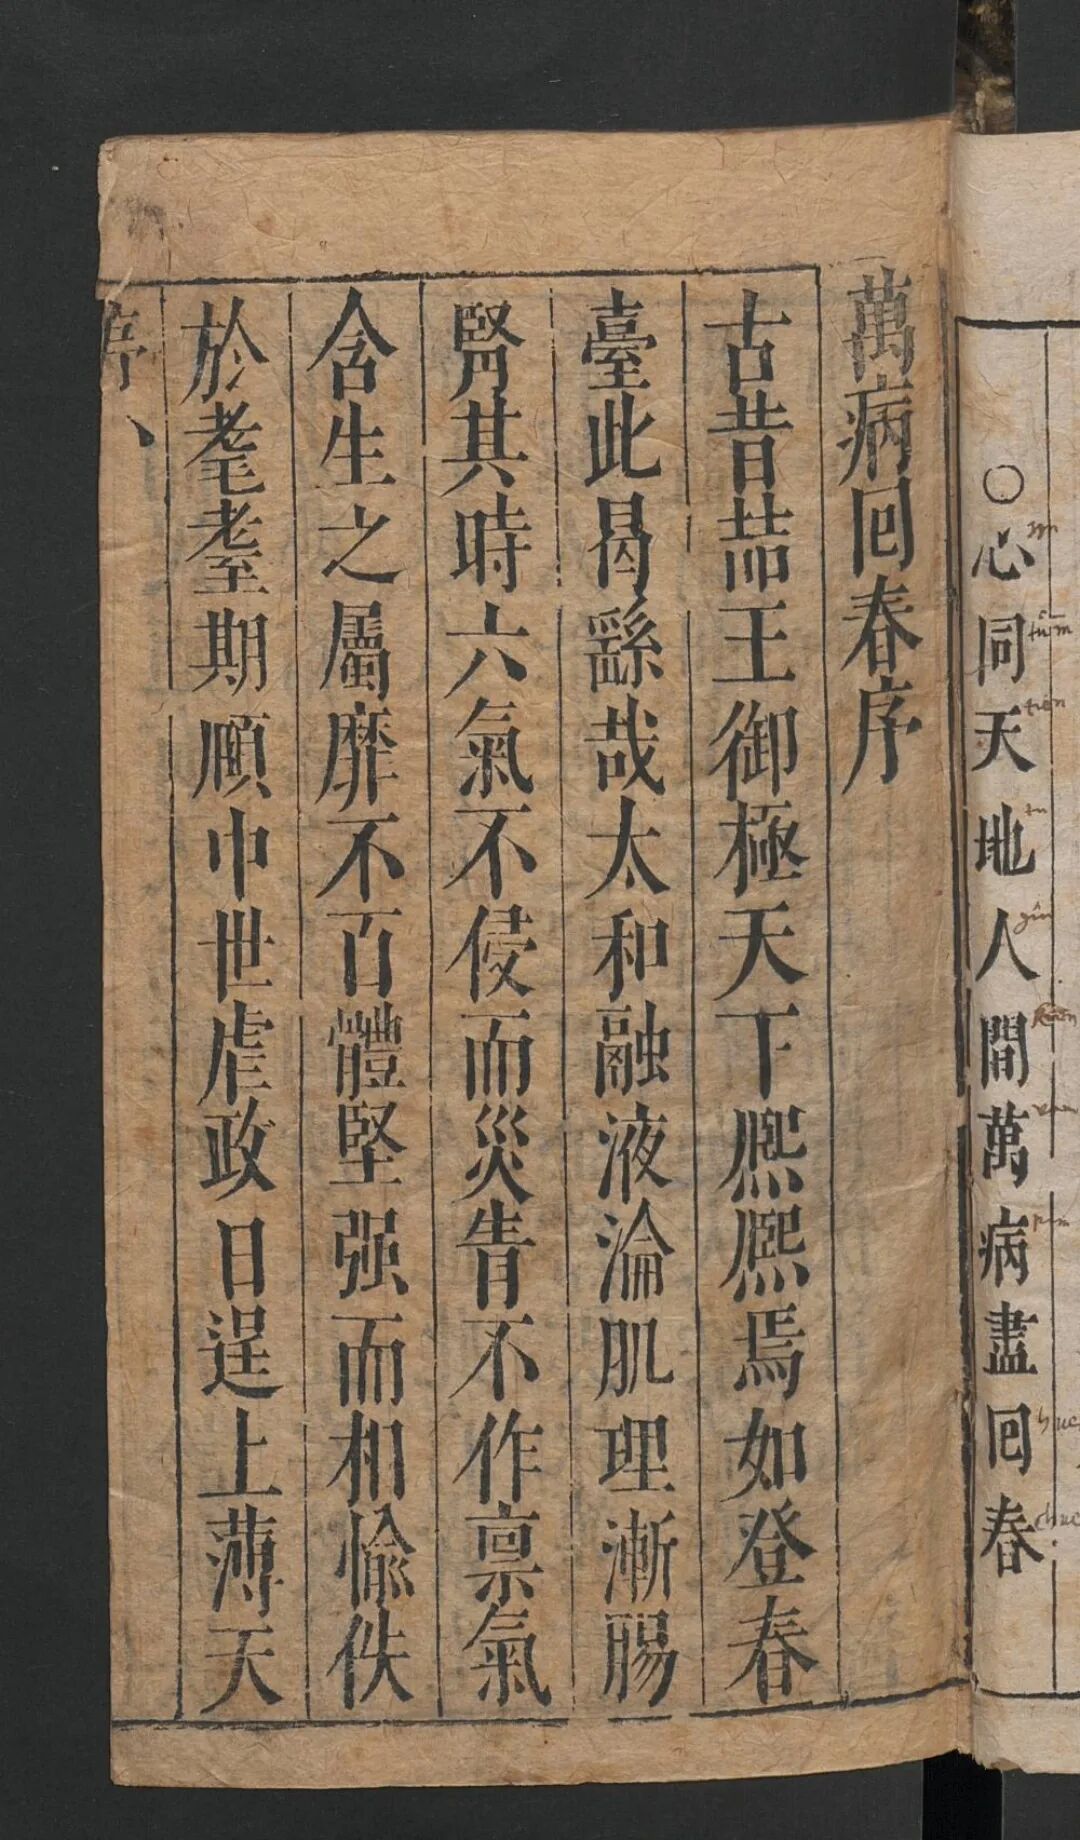 ○心同天地人間萬病盡囬春
萬病囬春序
古昔喆王御極天下熈熈焉如登春
臺此曷繇哉太和融液淪肌理漸腸
腎其時六氣不侵而災眚不作禀氣
含生之屬靡不百體堅强而相愉佚
於耄耋期頤中世虐政日逞上薄天
序